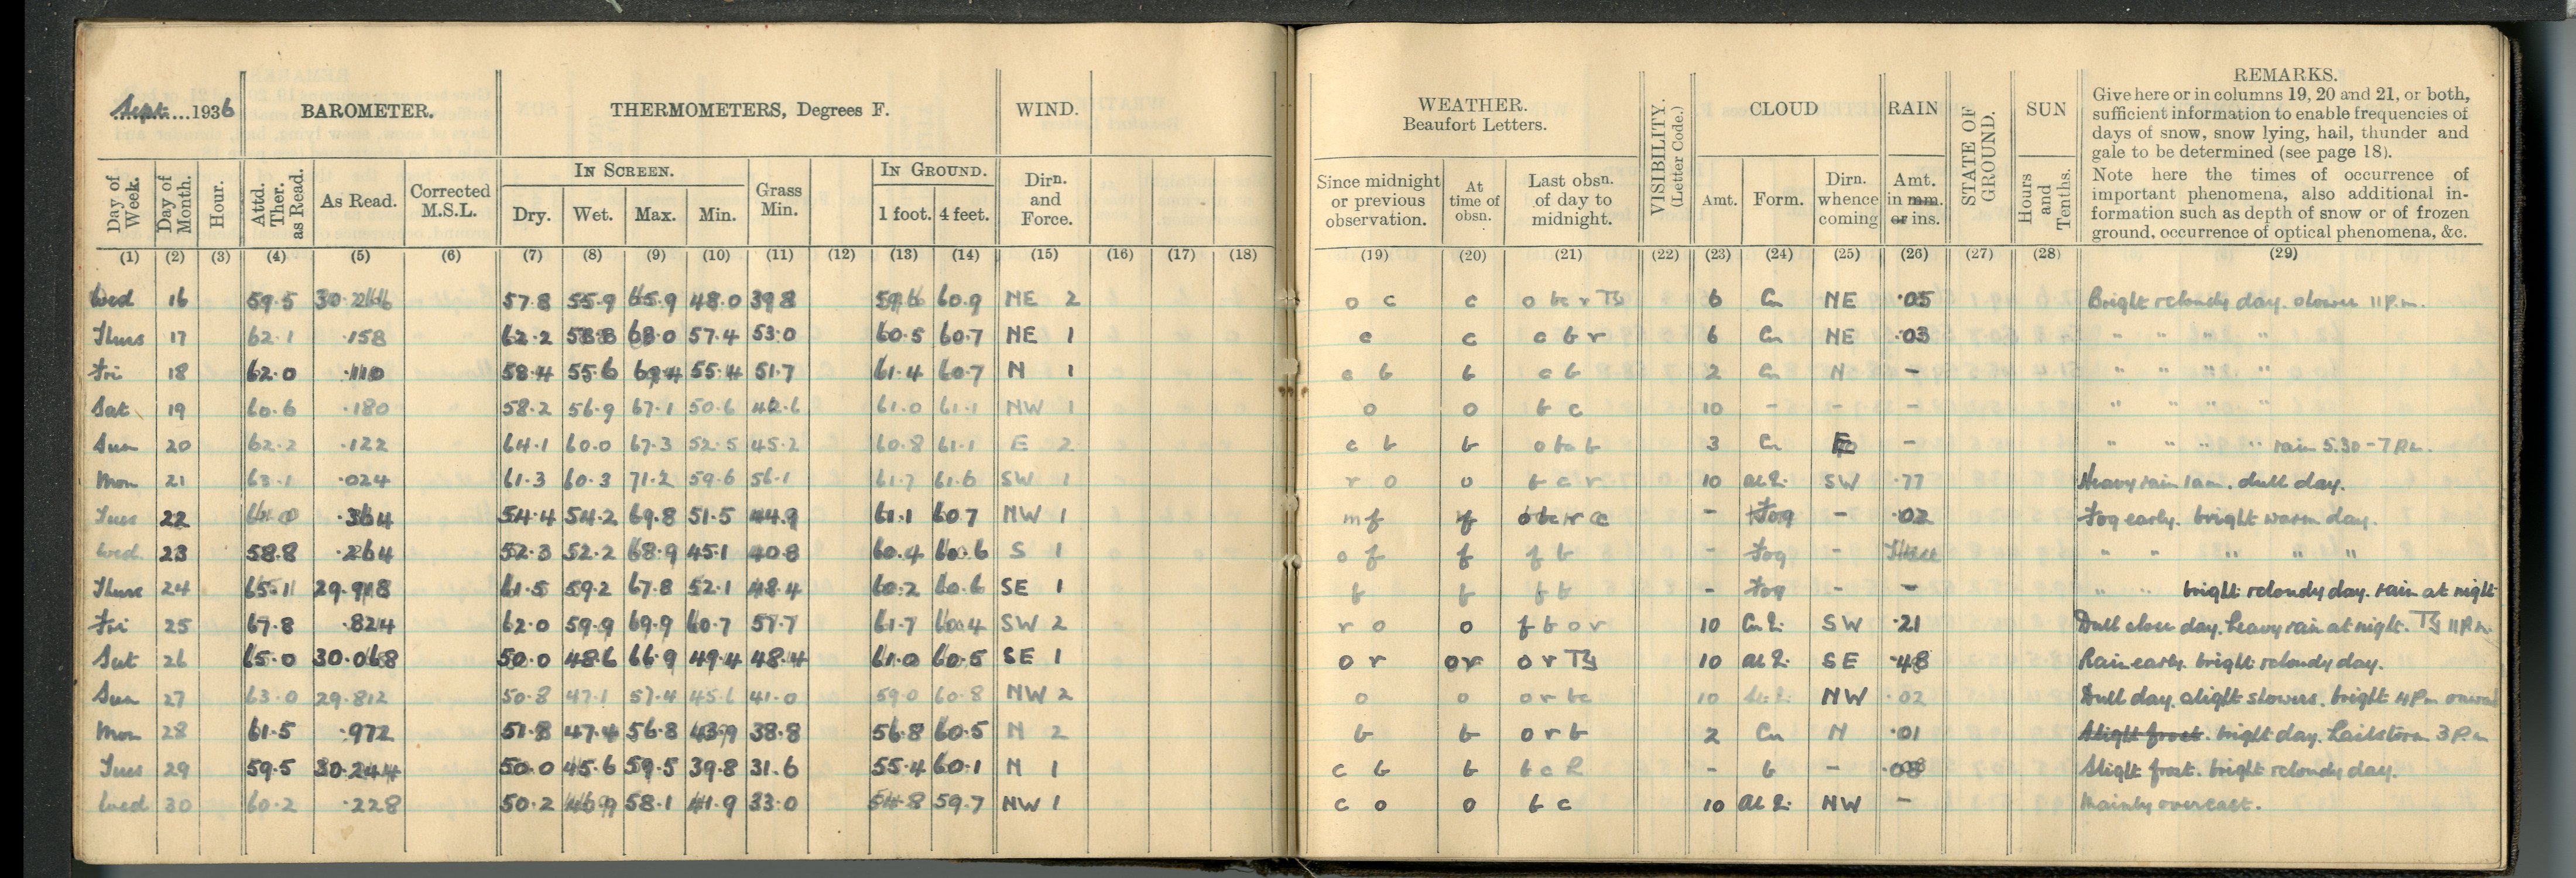 Sept....1936 BAROMETER. THERMOMETERS, Degrees F. WIND. WEATHER. Beaufort Letters. VISIBILITY. (Letter Code.) CLOUD RAIN STATE OF GROUND. SUN REMARKS.
Give here or in columns 19, 20 and 21, or both,
sufficient information to enable frequencies of
days of snow, snow lying, hail, thunder and
gale to be determined (see page 18).
Note here the times of occurrence of
important phenomena, also additional in-
formation such as depth of snow or of frozen
ground, occurrence of optical phenomena, &c.
IN SCREEN. IN GROUND.
Day of Week. Day of Month. Hour. Attd. Ther. as Read. As Read. Corrected M.S.L. Dry. Wet. Max. Min. Grass Min. 1 foot. 4 feet. Dirn. and Force. Since midnight or previous observation. At time of obsn. Last obsn. of day to midnight. Amt. Form. Dirn. whence coming Amt. in mm. or ins. Hours and Tenths.
(1) (2) (3) (4) (5) (6) (7) (8) (9) (10) (11) (12) (13) (14) (15) (16) (17) (18) (19) (20) (21) (22) (23) (24) (25) (26) (27) (28) (29)
Wed 16 59.5 57.8 55.9 65.9 48.0 39.8 60.9 NE 2 o c c 6 Cu NE .05 Bright & cloudy day. shower 11 P.m.
Thurs 17 62.1 .158 62.2 58.8 68.0 57.4 53.0 60.5 60.7 NE 1 c c c b r 6 Cu NE .03 " " " "
Fri 18 62.0 .110 58.4 55.6 69.4 55.4 51.7 61.4 60.7 N 1 c b b c b 2 Cu N - " " " "
Sat 19 60.6 .180 58.2 56.9 67.1 50.6 42.6 61.0 61.1 NW 1 o o b c 10 - - - " " " "
Sun 20 62.2 .122 64.1 60.0 67.3 52.5 45.2 60.8 61.1 E 2 c b b 3 Cu E - " " " " rain 5.30 - 7 P.m.
Mon 21 63.1 .024 61.3 60.3 71.2 59.6 56.1 61.7 61.6 SW 1 r o o b c r 10 SW .77 Heavy rain 1am. dull day.
Tues 22 .364 54.4 54.2 69.8 51.5 44.9 61.1 60.7 NW 1 m f f - Fog - .02 Fog early. bright warm day.
Wed 23 58.8 .264 52.3 52.2 68.9 45.1 40.8 60.4 60.6 S 1 o f f f b - Fog - " " " " "
Thurs 24 65.1 29.918 61.5 59.2 67.8 52.1 48.4 60.2 60.6 SE 1 f f f b - Fog - - " " bright & cloudy day. rain at night
Fri 25 67.8 .824 62.0 59.9 69.9 60.7 57.7 61.7 60.4 SW 2 r o o f b o r 10 SW .21 Dull close day. heavy rain at night. 11 P.m.
Sat 26 65.0 30.068 50.0 48.6 66.9 49.4 48.4 61.0 60.5 SE 1 o r o r o r 10 SE .48 Rain early. bright & cloudy day.
Sun 27 63.0 29.812 50.8 47.1 57.4 45.6 41.0 59.0 60.8 NW 2 o o o r bc 10 NW .02 Dull day. slight showers. bright 4 P.m
Mon 28 61.5 .972 51.8 47.4 56.8 43.9 38.8 56.8 60.5 N 2 b b o r b 2 Cu N .01 Slight frost. bright day. hailstorm 3 P.m
Tues 29 59.5 30.244 50.0 45.6 59.5 39.8 31.6 55.4 60.1 N 1 c b b - b - Slight frost. bright & cloudy day.
Wed 30 60.2 .228 50.2 46.9 58.1 41.9 33.0 54.8 59.7 NW 1 c o o b c 10 NW - Mainly overcast.